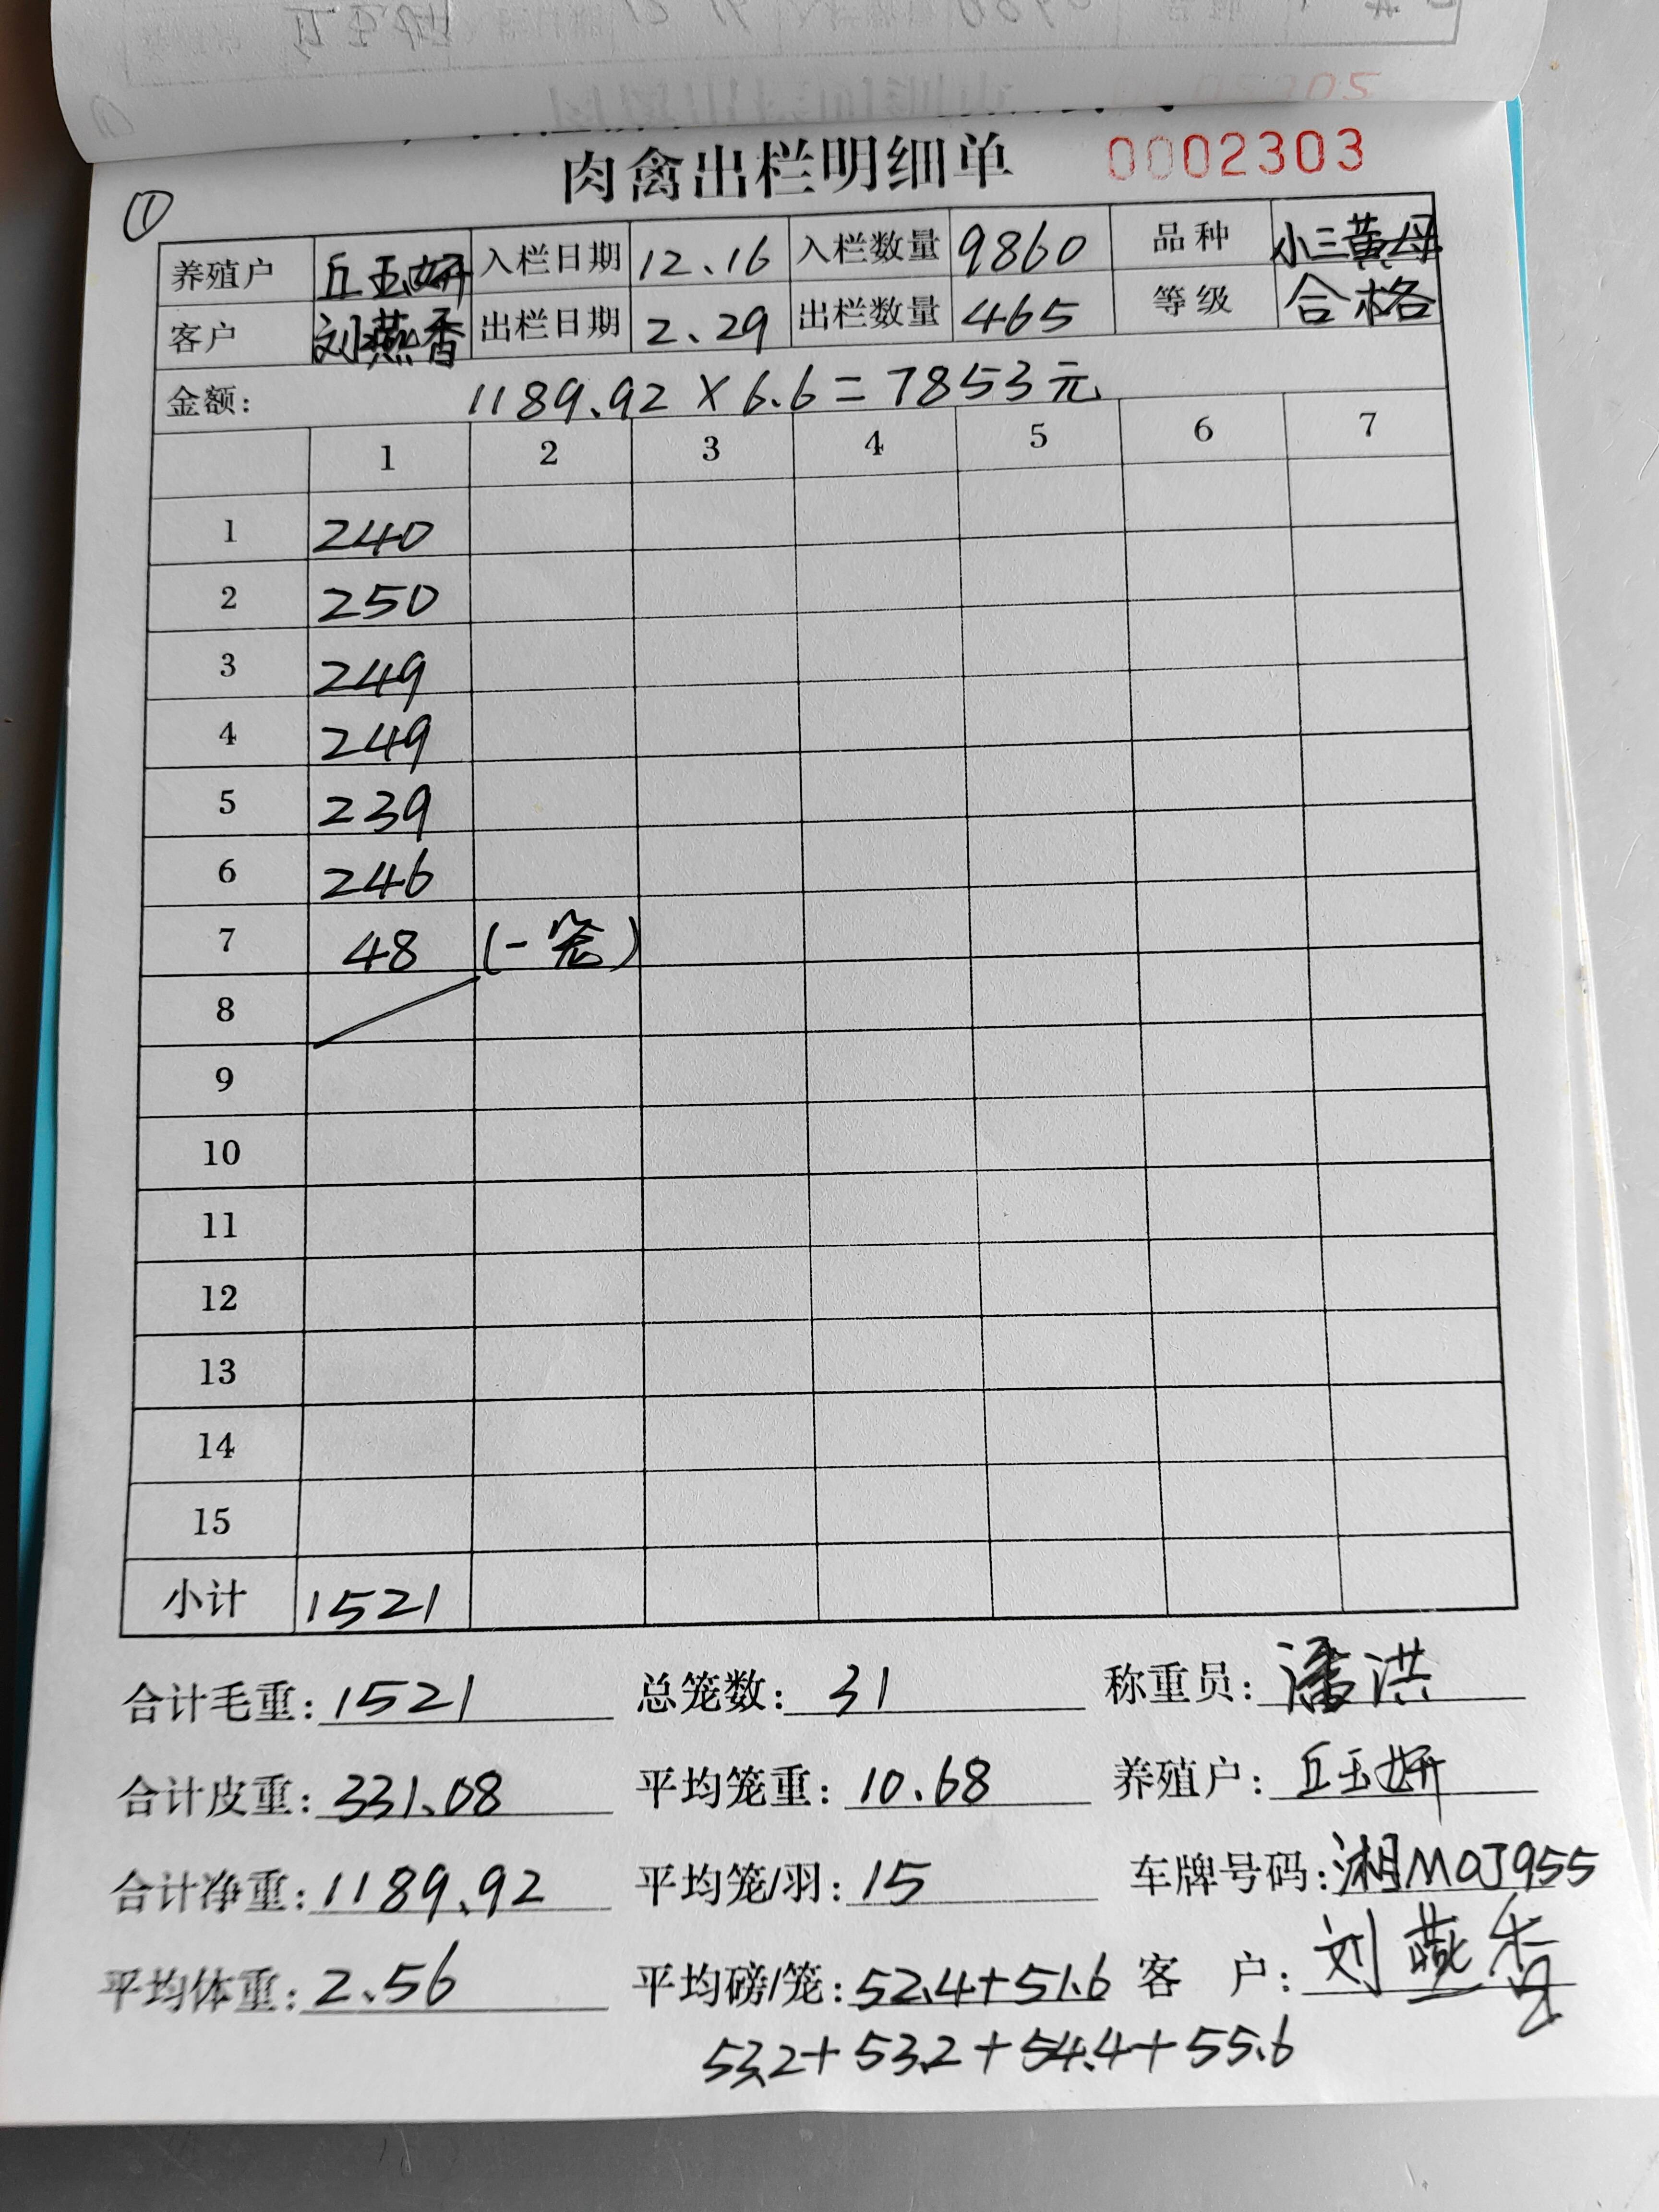 肉禽出栏明细单 0002303
①
养殖户 丘玉妍 入栏日期 12.16 入栏数量 9860 品种 小三黄母
客户 刘燕香 出栏日期 2.29 出栏数量 465 等级 合格
金额: 1189.92×6.6=7853元
1 2 3 4 5 6 7
1 240
2 250
3 249
4 249
5 239
6 246
7 48 (一笼)
8
9
10
11
12
13
14
15
小计 1521
合计毛重: 1521 总笼数: 31 称重员: 潘洪
合计皮重: 331.08 平均笼重: 10.68 养殖户: 丘玉妍
合计净重: 1189.92 平均笼/羽: 15 车牌号码: 湘M0J955
平均体重: 2.56 平均磅/笼: 52.4+51.6 客 户: 刘燕香
53.2+53.2+54.4+55.6